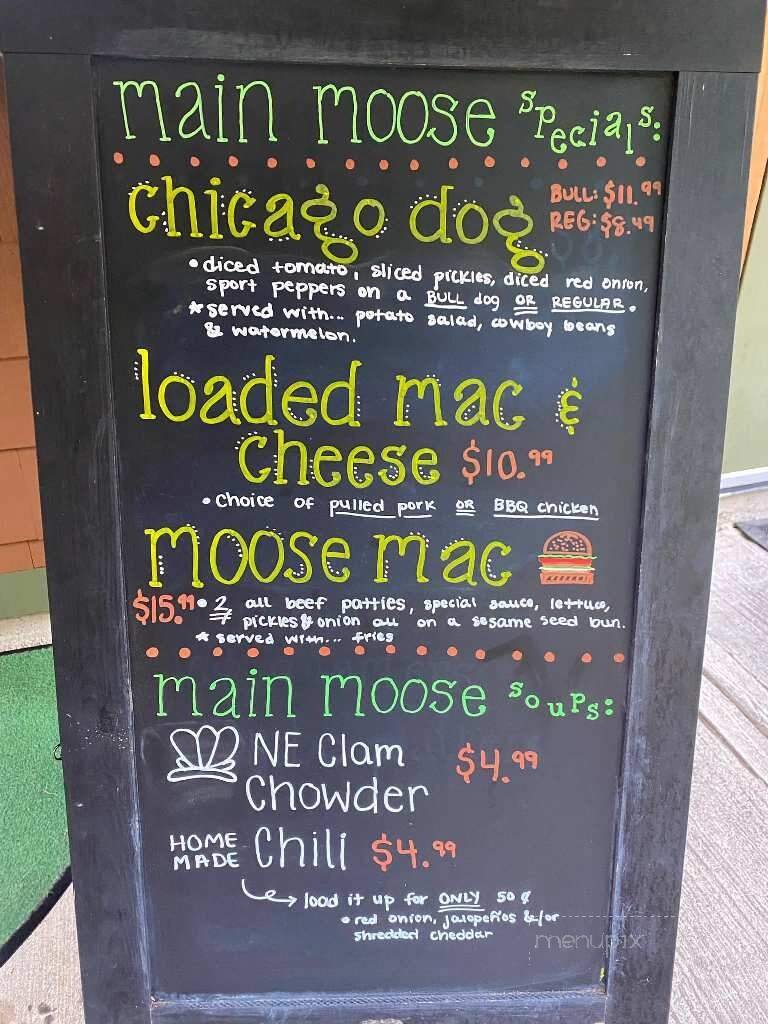 main moose specials:
chicago dog BULL: $11.99
REG: $8.49
• diced tomato, sliced pickles, diced red onion,
sport peppers on a BULL dog OR REGULAR.
* served with... potato salad, cowboy beans
& watermelon.
loaded mac &
cheese $10.99
• choice of pulled pork OR BBQ chicken
moose mac
$15.99 • 2 all beef patties, special sauce, lettuce,
pickles & onion all on a sesame seed bun.
* served with... fries
main moose soups:
NE Clam $4.99
Chowder
HOME
MADE Chili $4.99
load it up for ONLY 50 ¢
• red onion, jalapeños &/or
shredded cheddar
menupix